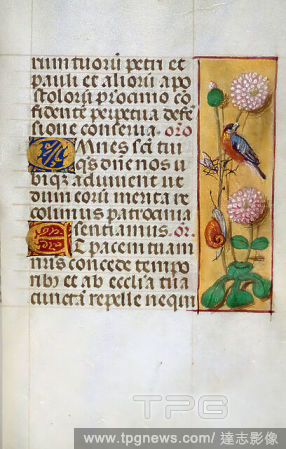 rium tuorū petri et
pauli et aliorū apo
stolorū proximo cō
fidente perpetua defē
sione conserua. oro
Omnes scī tui
qs dñe nos u
biqz adiuuent ut
dum eorū merita re
colimus patrocinia
sentiamus. or.
Et pacem tuam
nris concede tempo
ribz et ab ecclesia tua
cunctā repelle nequi
TPG
www.tpgnews.com/ 達志影像